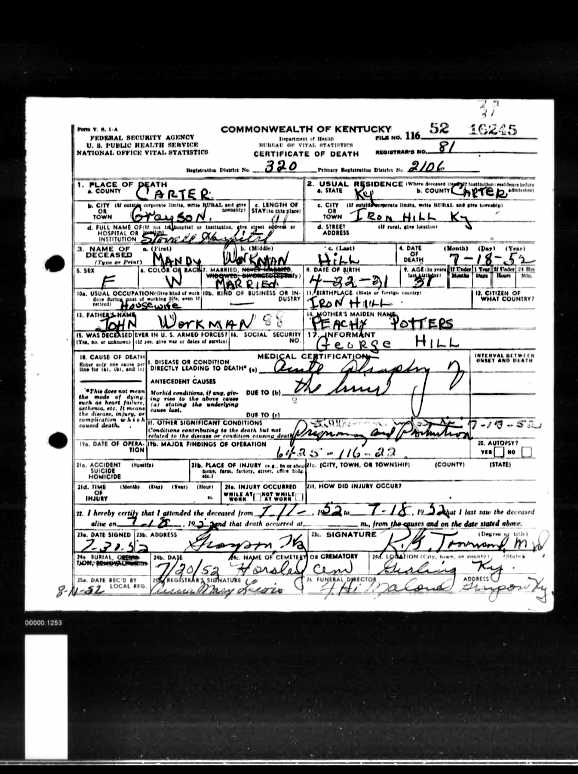 Form V. S. 1-A
FEDERAL SECURITY AGENCY
U. S. PUBLIC HEALTH SERVICE
NATIONAL OFFICE VITAL STATISTICS
COMMONWEALTH OF KENTUCKY
Department of Health
BUREAU OF VITAL STATISTICS
CERTIFICATE OF DEATH
FILE NO. 116 52 16245
REGISTRAR'S NO. 81
Registration District No. 320 Primary Registration District No. 2106
1. PLACE OF DEATH
a. COUNTY CARTER
2. USUAL RESIDENCE (Where deceased lived. If institution: residence before admission)
a. STATE Ky b. COUNTY CARTER
b. CITY (If outside corporate limits, write RURAL and give township) OR TOWN Grayson,
c. LENGTH OF STAY (in this place)
c. CITY (If outside corporate limits, write RURAL and give township) OR TOWN IRON HILL Ky
d. FULL NAME OF (If not in hospital or institution, give street address or HOSPITAL OR INSTITUTION Stovall Hospital
d. STREET ADDRESS (If rural, give location)
3. NAME OF DECEASED (Type or Print)
a. (First) MANDY b. (Middle) WORKMAN c. (Last) HILL
4. DATE OF DEATH (Month) (Day) (Year) 7-18-52
5. SEX F
6. COLOR OR RACE W
7. MARRIED, NEVER MARRIED, WIDOWED, DIVORCED MARRIED
8. DATE OF BIRTH 4-22-21
9. AGE (In years last birthday) 31
If Under 1 Year Months Days
If Under 24 Hrs Hours Min.
10a. USUAL OCCUPATION (Give kind of work done during most of working life, even if retired) Housewife
10b. KIND OF BUSINESS OR INDUSTRY
11. BIRTHPLACE (State or foreign country) IRON HILL
12. CITIZEN OF WHAT COUNTRY?
13. FATHER'S NAME JOHN WORKMAN 88
14. MOTHER'S MAIDEN NAME PEACHY POTTERS
15. WAS DECEASED EVER IN U. S. ARMED FORCES? (Yes, no, or unknown) (If yes, give war or dates of service)
16. SOCIAL SECURITY NO.
17. INFORMANT GEORGE HILL
18. CAUSE OF DEATH
Enter only one cause per line for (a), (b), and (c)
*This does not mean the mode of dying, such as heart failure, asthenia, etc. It means the disease, injury, or complication which caused death.
MEDICAL CERTIFICATION
INTERVAL BETWEEN ONSET AND DEATH
I. DISEASE OR CONDITION DIRECTLY LEADING TO DEATH* (a) Acute Atrophy of
ANTECEDENT CAUSES
the liver
Morbid conditions, if any, giving rise to the above cause (a) stating the underlying cause last.
DUE TO (b)
DUE TO (c)
II. OTHER SIGNIFICANT CONDITIONS
Conditions contributing to the death but not related to the disease or condition causing death. Pregnancy and Parturition 7-13-52
19a. DATE OF OPERATION
19b. MAJOR FINDINGS OF OPERATION 6425-116-22
20. AUTOPSY?
YES NO
21a. ACCIDENT SUICIDE HOMICIDE (Specify)
21b. PLACE OF INJURY (e.g., in or about home, farm, factory, street, office bldg., etc.)
21c. (CITY, TOWN, OR TOWNSHIP) (COUNTY) (STATE)
21d. TIME OF INJURY (Month) (Day) (Year) (Hour) m.
21e. INJURY OCCURRED WHILE AT WORK NOT WHILE AT WORK
21f. HOW DID INJURY OCCUR?
22. I hereby certify that I attended the deceased from 7-11-, 1952 to 7-18, 1952 that I last saw the deceased
alive on 7-18, 1952 and that death occurred at m., from the causes and on the date stated above.
23a. DATE SIGNED 7-31-52
23b. ADDRESS Grayson Ky
23c. SIGNATURE (Degree or title)
24a. BURIAL, CREMATION, REMOVAL
24b. DATE 7/20/52
24c. NAME OF CEMETERY OR CREMATORY Horsley Cem
24d. LOCATION (City, town, or county) (State) Ky.
25a. DATE REC'D BY LOCAL REG. 8-11-52
25b. REGISTRAR'S SIGNATURE
26. FUNERAL DIRECTOR Malone
ADDRESS Grayson Ky.
00000.1253